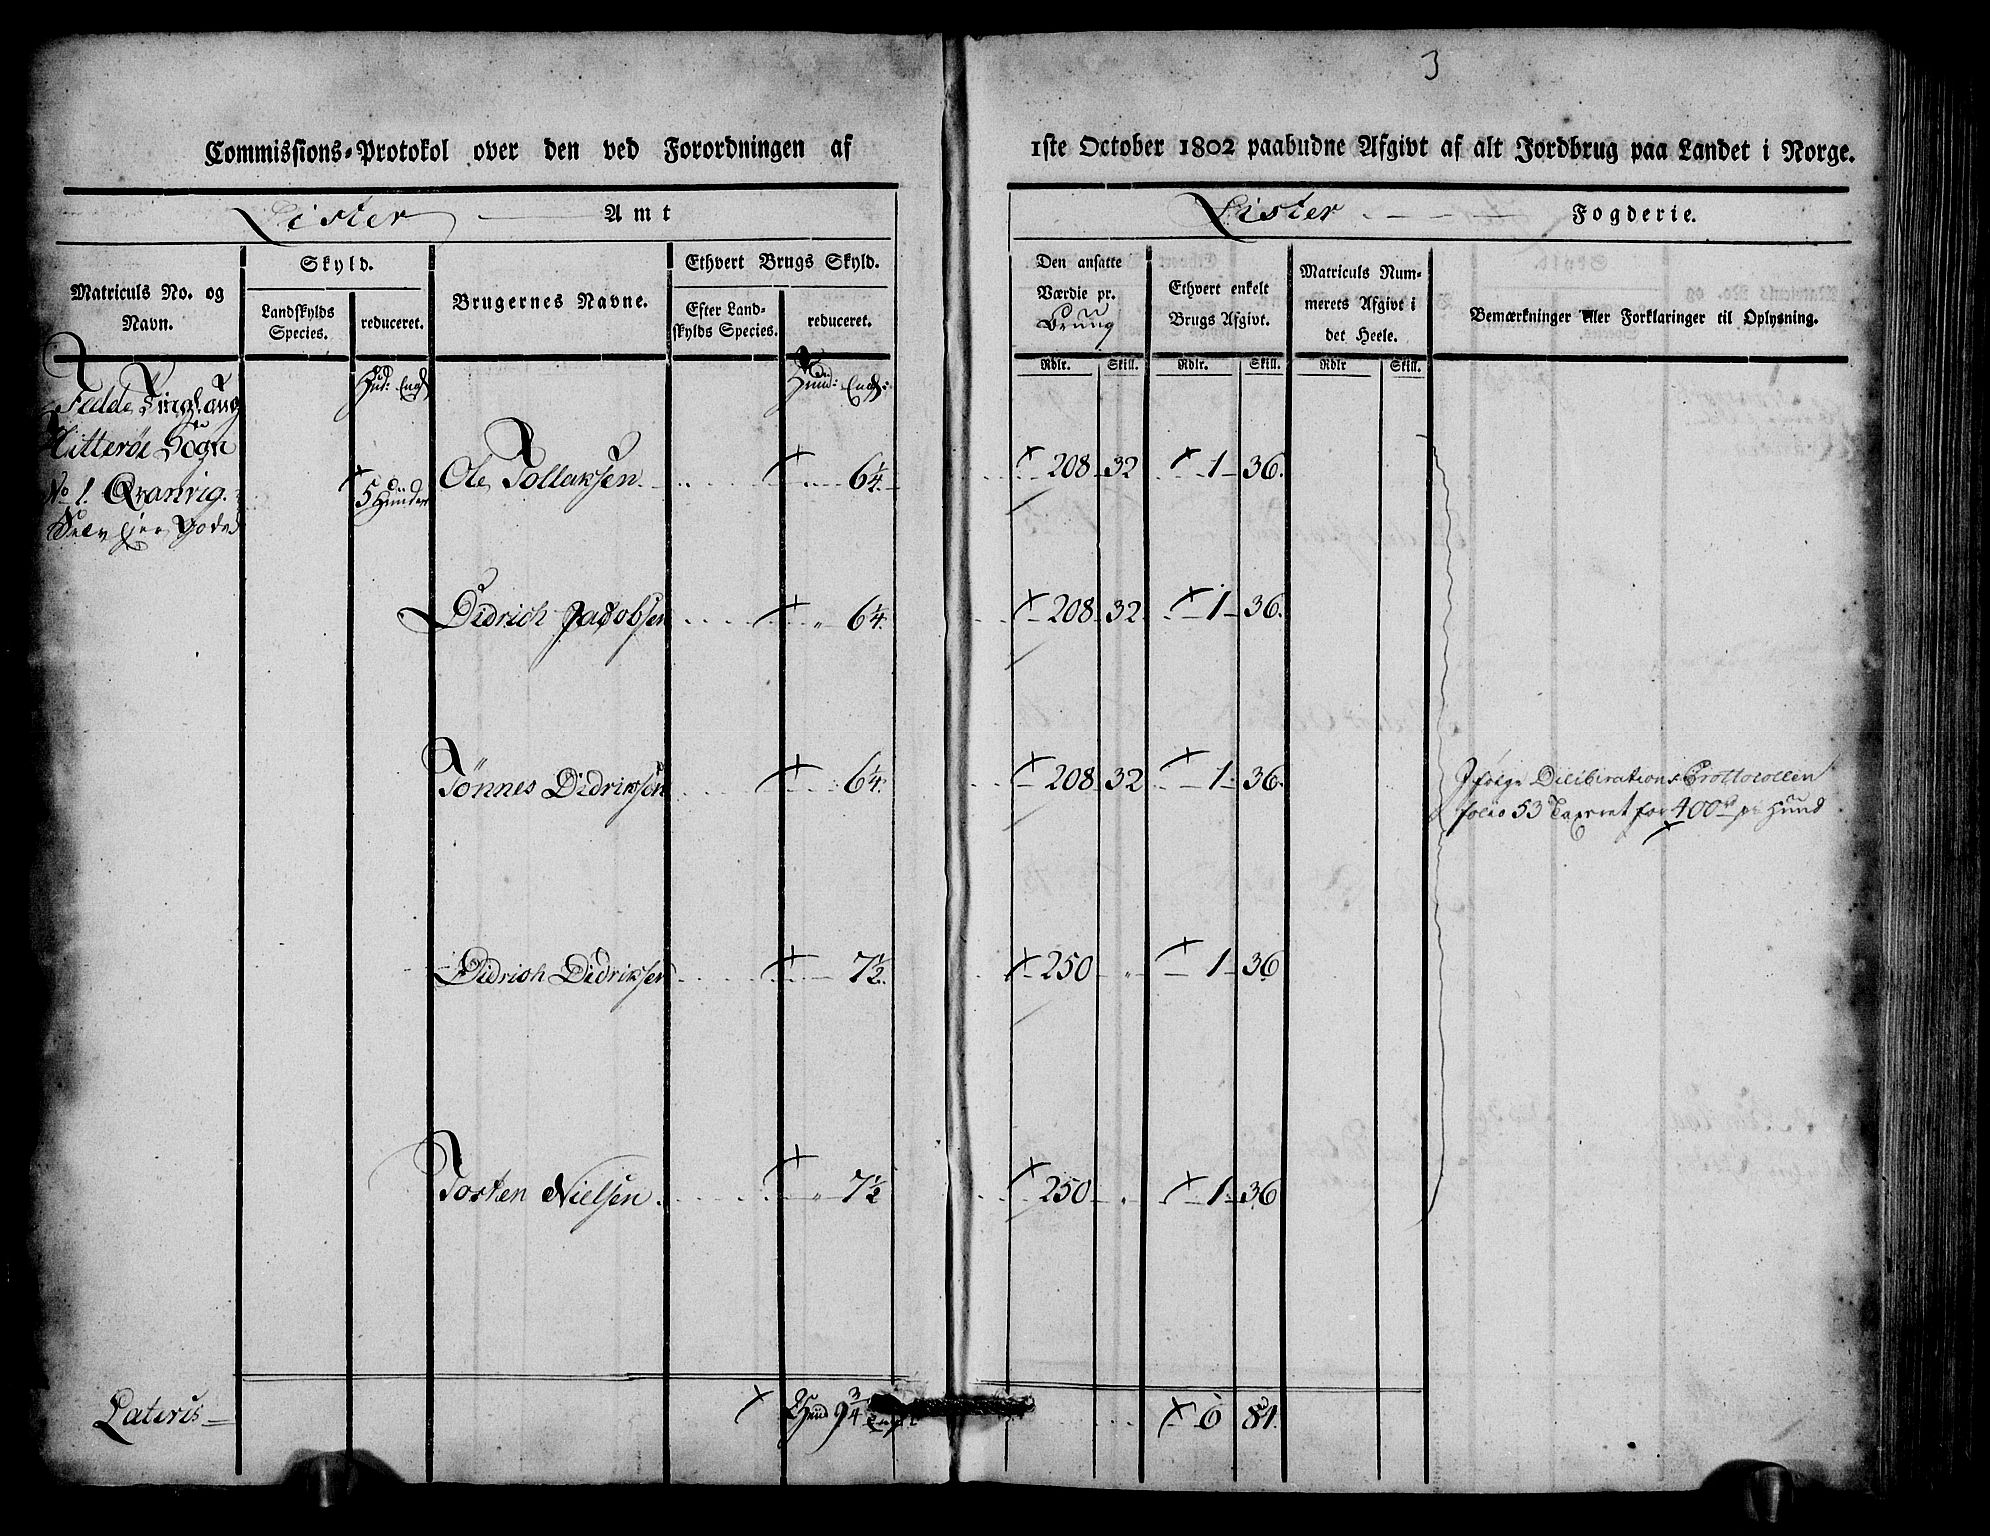 3
Commissions-Protokol over den ved Forordningen af 1ste October 1802 paabudne Afgivt af alt Jordbrug paa Landet i Norge.
Lister Amt
Lister Fogderie.
Matriculs No. og Navn.
Skyld.
Landskylds Species.
reduceret.
Brugernes Navne.
Ethvert Brugs Skyld.
Efter Landskylds Species.
reduceret.
Den ansatte Værdie pr. Brug
Ethvert enkelt Brugs Afgivt.
Matriculs Nummerets Afgivt i det Heele.
Bemærkninger eller Forklaringer til Oplysning.
Rdlr. Skill. Rdlr. Skill. Rdlr Skill.
Hud: Eng:
Hud: Eng:
Fedde Tinglaug
Hitterøe Sogn
No 1. Qvanvig. 5 Huder Ole Tollaksen 6¼ 208 32 1 36.
Selv Ejer Gods
Didrich Jacobsen 6¼ 208 32 1 36.
Tönnes Didriksen 6¼ 208 32 1 36.
Ifølge Deliberations Prottocollen
folio 53 Taxeret for 400 rd pr Hund
Didrich Didriksen 7½ 250 1 36
Torken Nielsen 7½ 250 1 36
Lateris 9¾ 6 84.